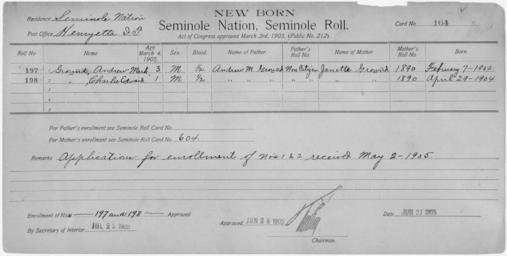 NEW BORN
Residence Seminole Nation
Seminole Nation, Seminole Roll.
Card No. 164
Post Office, Henryetta I.T.
Act of Congress approved March 3rd, 1905, (Public No. 212).
Roll No Name Age March 4, 1905. Sex. Blood. Name of Father Father's Roll No. Name of Mother Mother's Roll No. Born
197 Andrew Mark 3 M. Andrew M. Non Citizen Janette 1890 February 7-1902
198 " Charles 1 M. " " " " " " " 1890 April 29-1904
For Father's enrollment see Seminole Roll Card No.
For Mother's enrollment see Seminole Roll Card No. 604
Remarks Application for enrollment of Nos 1 & 2 received May 2-1905.
Enrollment of Nos 197 and 198 Approved
By Secretary of Interior 1905
Approved JUN 1905
Chairman.
Date JUN 21 1905